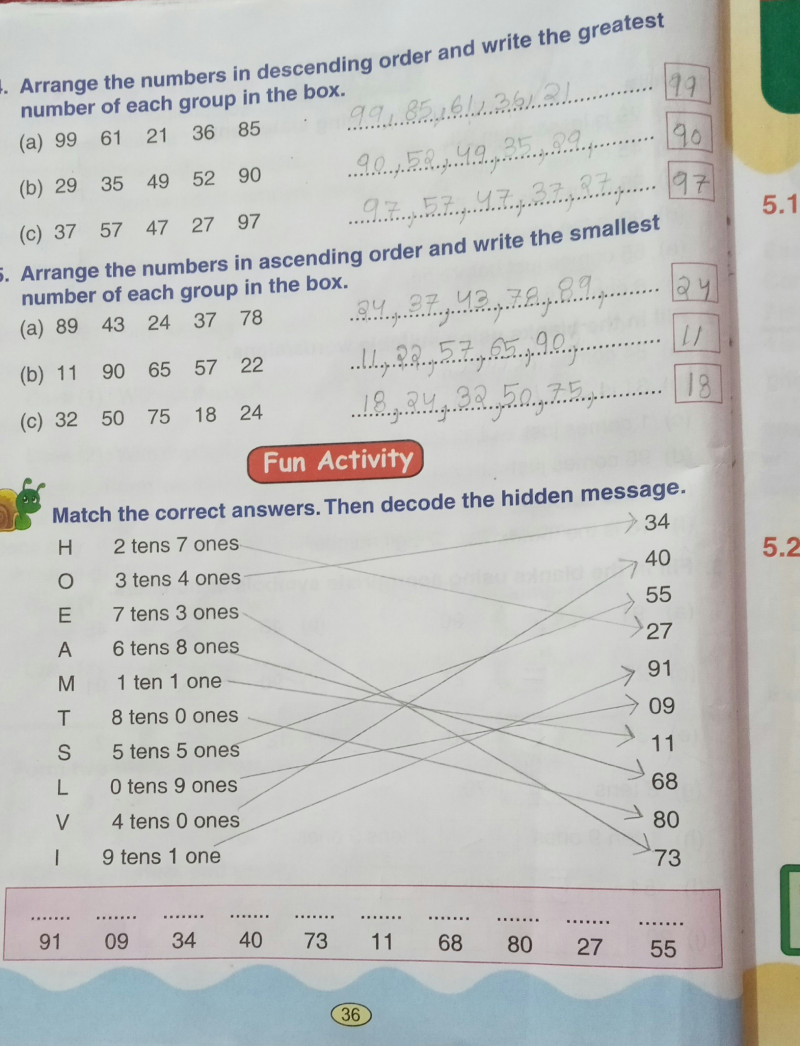 . Arrange the numbers in descending order and write the greatest
number of each group in the box.
(a) 99 61 21 36 85 99, 85, 61, 36, 21 99
(b) 29 35 49 52 90 90, 52, 49, 35, 29, 90
(c) 37 57 47 27 97 97, 57, 47, 37, 27, 97
5. Arrange the numbers in ascending order and write the smallest
number of each group in the box.
(a) 89 43 24 37 78 24, 37, 43, 78, 89, 24
(b) 11 90 65 57 22 11, 22, 57, 65, 90, 11
(c) 32 50 75 18 24 18, 24, 32, 50, 75, 18
Fun Activity
Match the correct answers. Then decode the hidden message.
H 2 tens 7 ones 34
O 3 tens 4 ones 40
E 7 tens 3 ones 55
A 6 tens 8 ones 27
M 1 ten 1 one 91
T 8 tens 0 ones 09
S 5 tens 5 ones 11
L 0 tens 9 ones 68
V 4 tens 0 ones 80
I 9 tens 1 one 73
....... ....... ....... ....... ....... ....... ....... ....... ....... .......
91 09 34 40 73 11 68 80 27 55
36
5.1
5.2